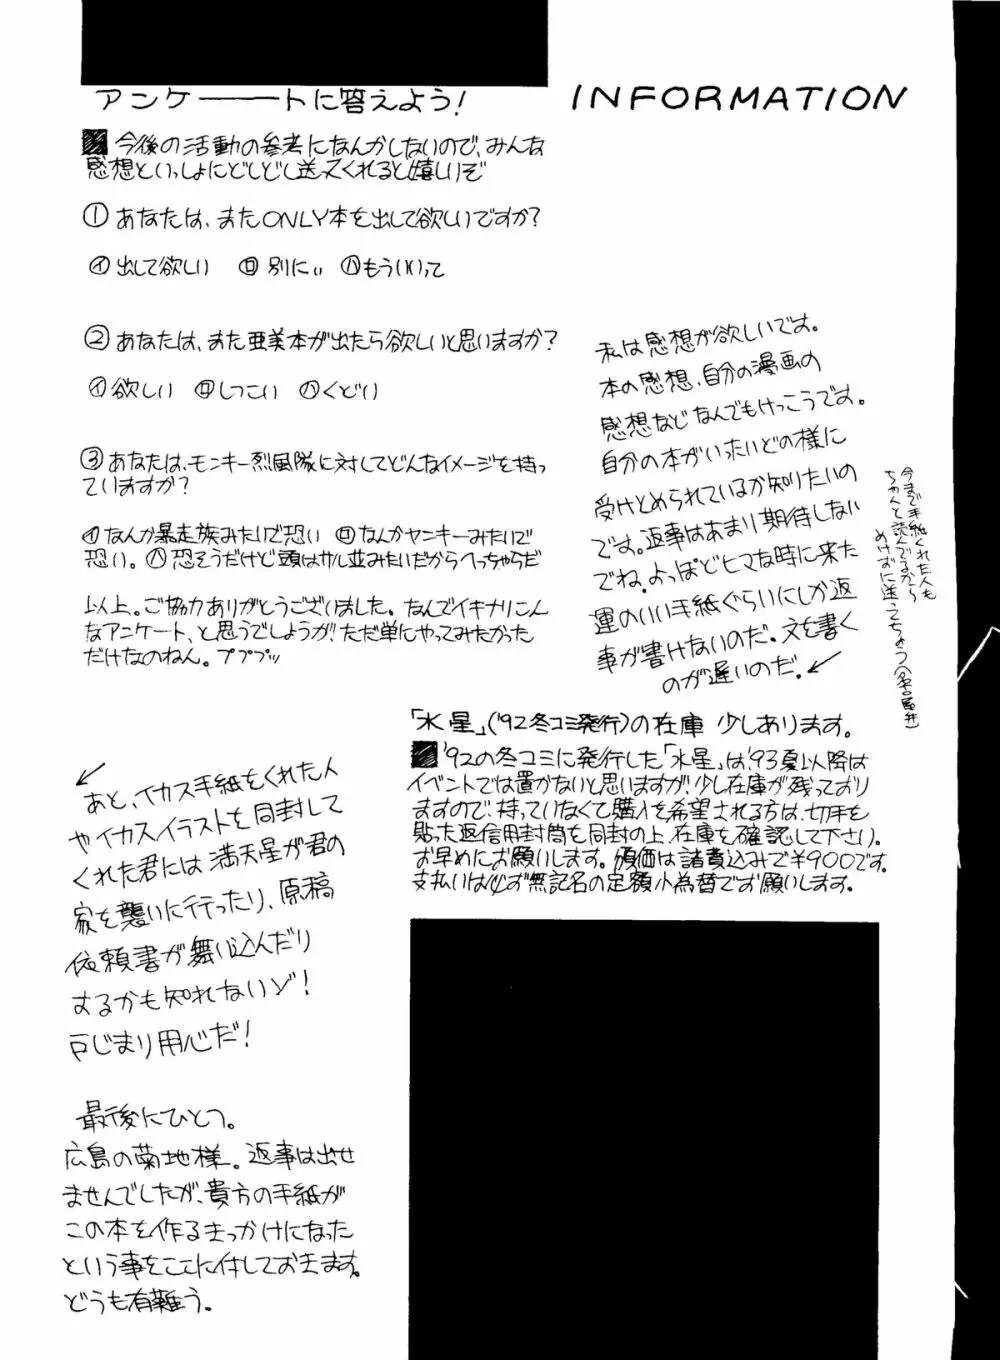 アンケ――トに答えよう!
INFORMATION
今後の活動の参考になんかしないので、みんな
感想といっしょにどしどし送ってくれると嬉しいぞ
①あなたは、またONLY本を出して欲しいですか?
㋑出して欲しい ㋺別にぃ ㋩もういいって
②あなたは、また亜美本が出たら欲しいと思いますか?
㋑欲しい ㋺しつこい ㋩くどい
③あなたは、モンキー烈風隊に対してどんなイメージを持っ
ていますか?
㋑なんか暴走族みたいで恐い ㋺なんかヤンキーみたいで
恐い。㋩恐そうだけど頭はサル並みたいだからへっちゃらだ
以上。ご協力ありがとうございました。なんでイキナリこん
なアンケート、と思うでしょうが、ただ単にやってみたかった
だけなのねん。プププッ
私は感想が欲しいです。
本の感想、自分の漫画の
感想などなんでもけっこうです。
自分の本がいったいどの様に
受けとめられているか知りたいの
です。返事はあまり期待しない
でね。よっぽどヒマな時に来た
運のいい手紙ぐらいにしか返
事が書けないのだ。文を書く
のが遅いのだ。
今まで手紙くれた人も
ちゃんと読んでるから
めげずに送ってちょう(名古屋弁)
「水星」('92冬コミ発行)の在庫 少しあります。
'92の冬コミに発行した「水星」は、'93夏以降は
イベントでは置かないと思いますが、少し在庫が残っており
ますので、持っていなくて購入を希望される方は、切手を
貼った返信用封筒を同封の上、在庫を確認して下さい。
お早めにお願いします。頒価は諸費込みで¥900です。
支払いは必ず無記名の定額小為替でお願いします。
あと、イカス手紙をくれた人
やイカスイラストを同封して
くれた君には満天星が君の
家を襲いに行ったり、原稿
依頼書が舞い込んだり
するかも知れないゾ!
戸じまり用心だ!
最後にひとつ。
広島の菊地様。返事は出せ
ませんでしたが、貴方の手紙が
この本を作るきっかけになった
という事をここに付しておきます。
どうも有難う。